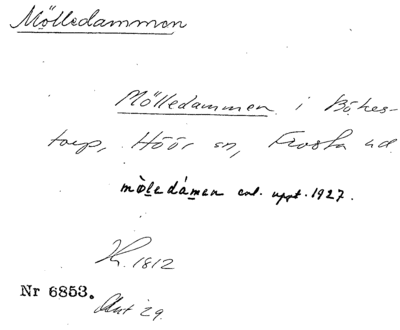 Mölledammen
Mölledammen i Bökes-
torp, Höör sn, Frosta hd
mòledámen enl. uppt. 1927.
1812
Nr 6853.
29.